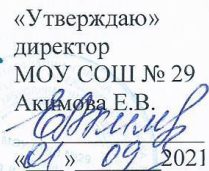 «Утверждаю»
директор
МОУ СОШ № 29
Акимова Е.В.
«01» 09 2021